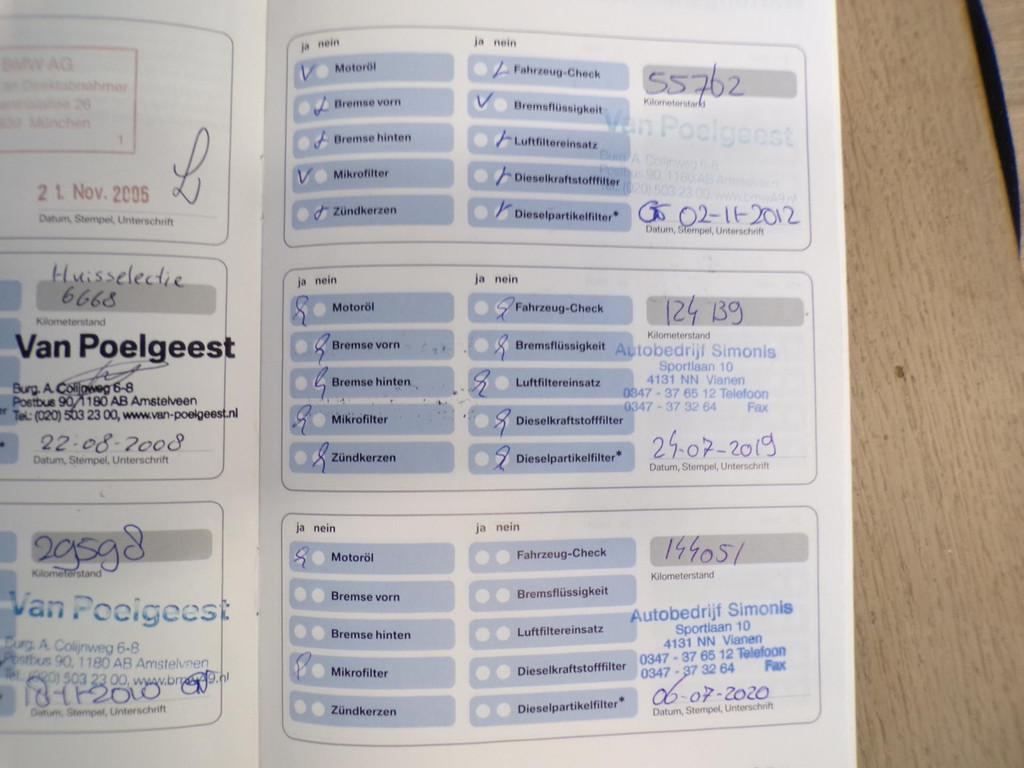 BMW AG
an Direktabnehmer
München
1
21. Nov. 2006
Datum, Stempel, Unterschrift
Huisselectie
6668
Kilometerstand
Van Poelgeest
Burg. A. Colijnweg 6-8
Postbus 90, 1180 AB Amstelveen
Tel.: (020) 503 23 00, www.van-poelgeest.nl
22-08-2008
Datum, Stempel, Unterschrift
29598
Kilometerstand
Van Poelgeest
Burg. A. Colijnweg 6-8
Postbus 90, 1180 AB Amstelveen
Tel.: (020) 503 23 00,
18-11-2010
Datum, Stempel, Unterschrift
ja nein
Motoröl
Bremse vorn
Bremse hinten
Mikrofilter
Zündkerzen
ja nein
Fahrzeug-Check
Bremsflüssigkeit
Luftfiltereinsatz
Dieselkraftstofffilter
Dieselpartikelfilter*
55762
Kilometerstand
Van Poelgeest
Burg. A. Colijnweg 6-8
Postbus 90, 1180 AB Amstelveen
(020) 503 23 00,
02-11-2012
Datum, Stempel, Unterschrift
ja nein
Motoröl
Bremse vorn
Bremse hinten
Mikrofilter
Zündkerzen
ja nein
Fahrzeug-Check
Bremsflüssigkeit
Luftfiltereinsatz
Dieselkraftstofffilter
Dieselpartikelfilter*
124139
Kilometerstand
Autobedrijf Simonis
Sportlaan 10
4131 NN Vianen
0347 - 37 65 12 Telefoon
0347 - 37 32 64 Fax
24-07-2019
Datum, Stempel, Unterschrift
ja nein
Motoröl
Bremse vorn
Bremse hinten
Mikrofilter
Zündkerzen
ja nein
Fahrzeug-Check
Bremsflüssigkeit
Luftfiltereinsatz
Dieselkraftstofffilter
Dieselpartikelfilter*
144051
Kilometerstand
Autobedrijf Simonis
Sportlaan 10
4131 NN Vianen
0347 - 37 65 12 Telefoon
0347 - 37 32 64 Fax
06-07-2020
Datum, Stempel, Unterschrift